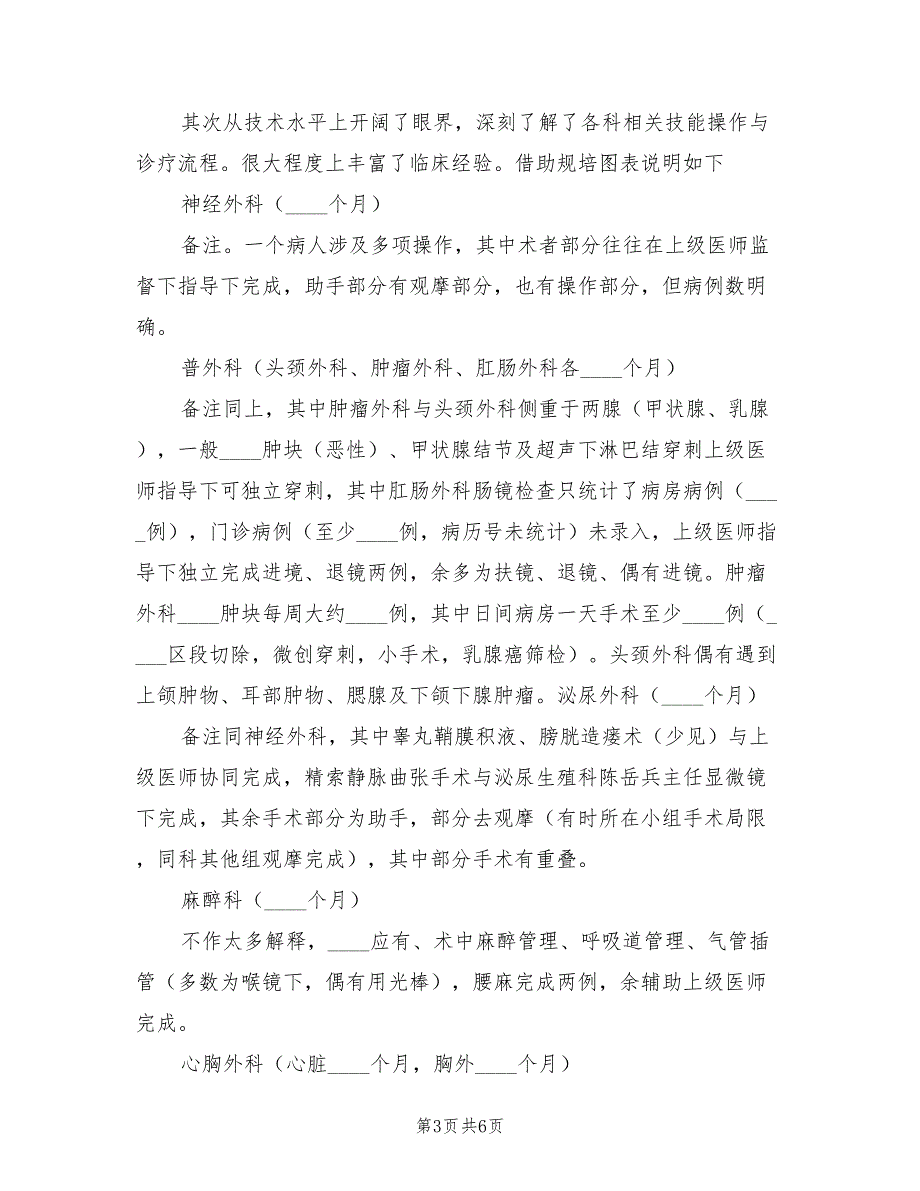 其次从技术水平上开阔了眼界，深刻了解了各科相关技能操作与
诊疗流程。很大程度上丰富了临床经验。借助规培图表说明如下
神经外科（____个月）
备注。一个病人涉及多项操作，其中术者部分往往在上级医师监
督下指导下完成，助手部分有观摩部分，也有操作部分，但病例数明
确。
普外科（头颈外科、肿瘤外科、肛肠外科各____个月）
备注同上，其中肿瘤外科与头颈外科侧重于两腺（甲状腺、乳腺
），一般____肿块（恶性）、甲状腺结节及超声下淋巴结穿刺上级医
师指导下可独立穿刺，其中肛肠外科肠镜检查只统计了病房病例（___
_例），门诊病例（至少____例，病历号未统计）未录入，上级医师指
导下独立完成进境、退镜两例，余多为扶镜、退镜、偶有进镜。肿瘤
外科____肿块每周大约____例，其中日间病房一天手术至少____例（_
___区段切除，微创穿刺，小手术，乳腺癌筛检）。头颈外科偶有遇到
上颌肿物、耳部肿物、腮腺及下颌下腺肿瘤。泌尿外科（____个月）
备注同神经外科，其中睾丸鞘膜积液、膀胱造瘘术（少见）与上
级医师协同完成，精索静脉曲张手术与泌尿生殖科陈岳兵主任显微镜
下完成，其余手术部分为助手，部分去观摩（有时所在小组手术局限
，同科其他组观摩完成），其中部分手术有重叠。
麻醉科（____个月）
不作太多解释，____应有、术中麻醉管理、呼吸道管理、气管插
管（多数为喉镜下，偶有用光棒），腰麻完成两例，余辅助上级医师
完成。
心胸外科（心脏____个月，胸外____个月）
第3页共6页